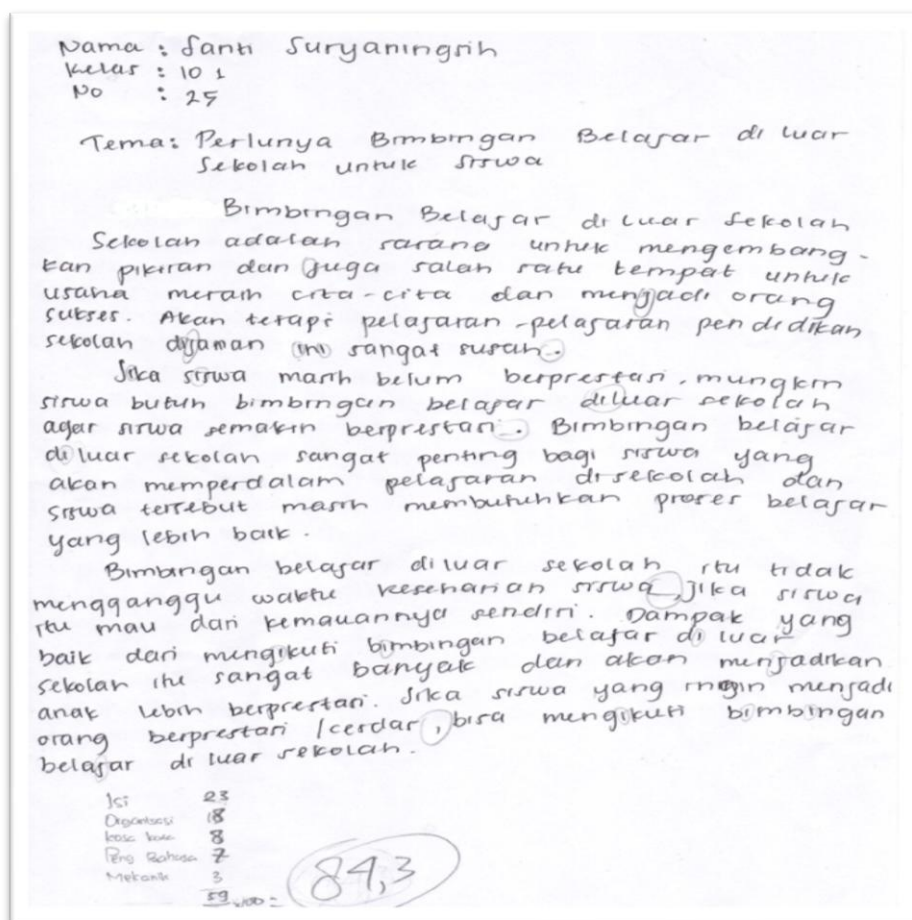 Nama : Santi Suryaningsih
Kelas : 10 1
No : 25
Tema: Perlunya Bimbingan Belajar di luar
Sekolah untuk siswa
Bimbingan Belajar di luar sekolah
Sekolah adalah sarana untuk mengembang-
kan pikiran dan juga salah satu tempat untuk
usaha meraih cita-cita dan menjadi orang
sukses. Akan tetapi pelajaran-pelajaran pendidikan
sekolah dijaman ini sangat susah.
Jika siswa masih belum berprestasi, mungkin
siswa butuh bimbingan belajar diluar sekolah
agar siswa semakin berprestasi. Bimbingan belajar
diluar sekolah sangat penting bagi siswa yang
akan memperdalam pelajaran disekolah dan
siswa tersebut masih membutuhkan proses belajar
yang lebih baik.
Bimbingan belajar diluar sekolah itu tidak
mengganggu waktu keseharian siswa, jika siswa
itu mau dari kemauannya sendiri. Dampak yang
baik dari mengikuti bimbingan belajar di luar
sekolah itu sangat banyak dan akan menjadikan
anak lebih berprestasi. Jika siswa yang ingin menjadi
orang berprestasi /cerdas, bisa mengikuti bimbingan
belajar di luar sekolah.
Isi 23
Organisasi 18
kosa kata 8
Peng Bahasa 7
Mekanik 3
59 x100 = 84,3